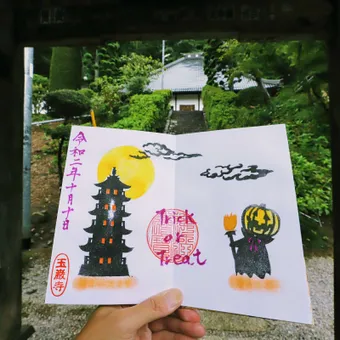 令和二年十月十日
玉巌寺
Trick
or
Treat